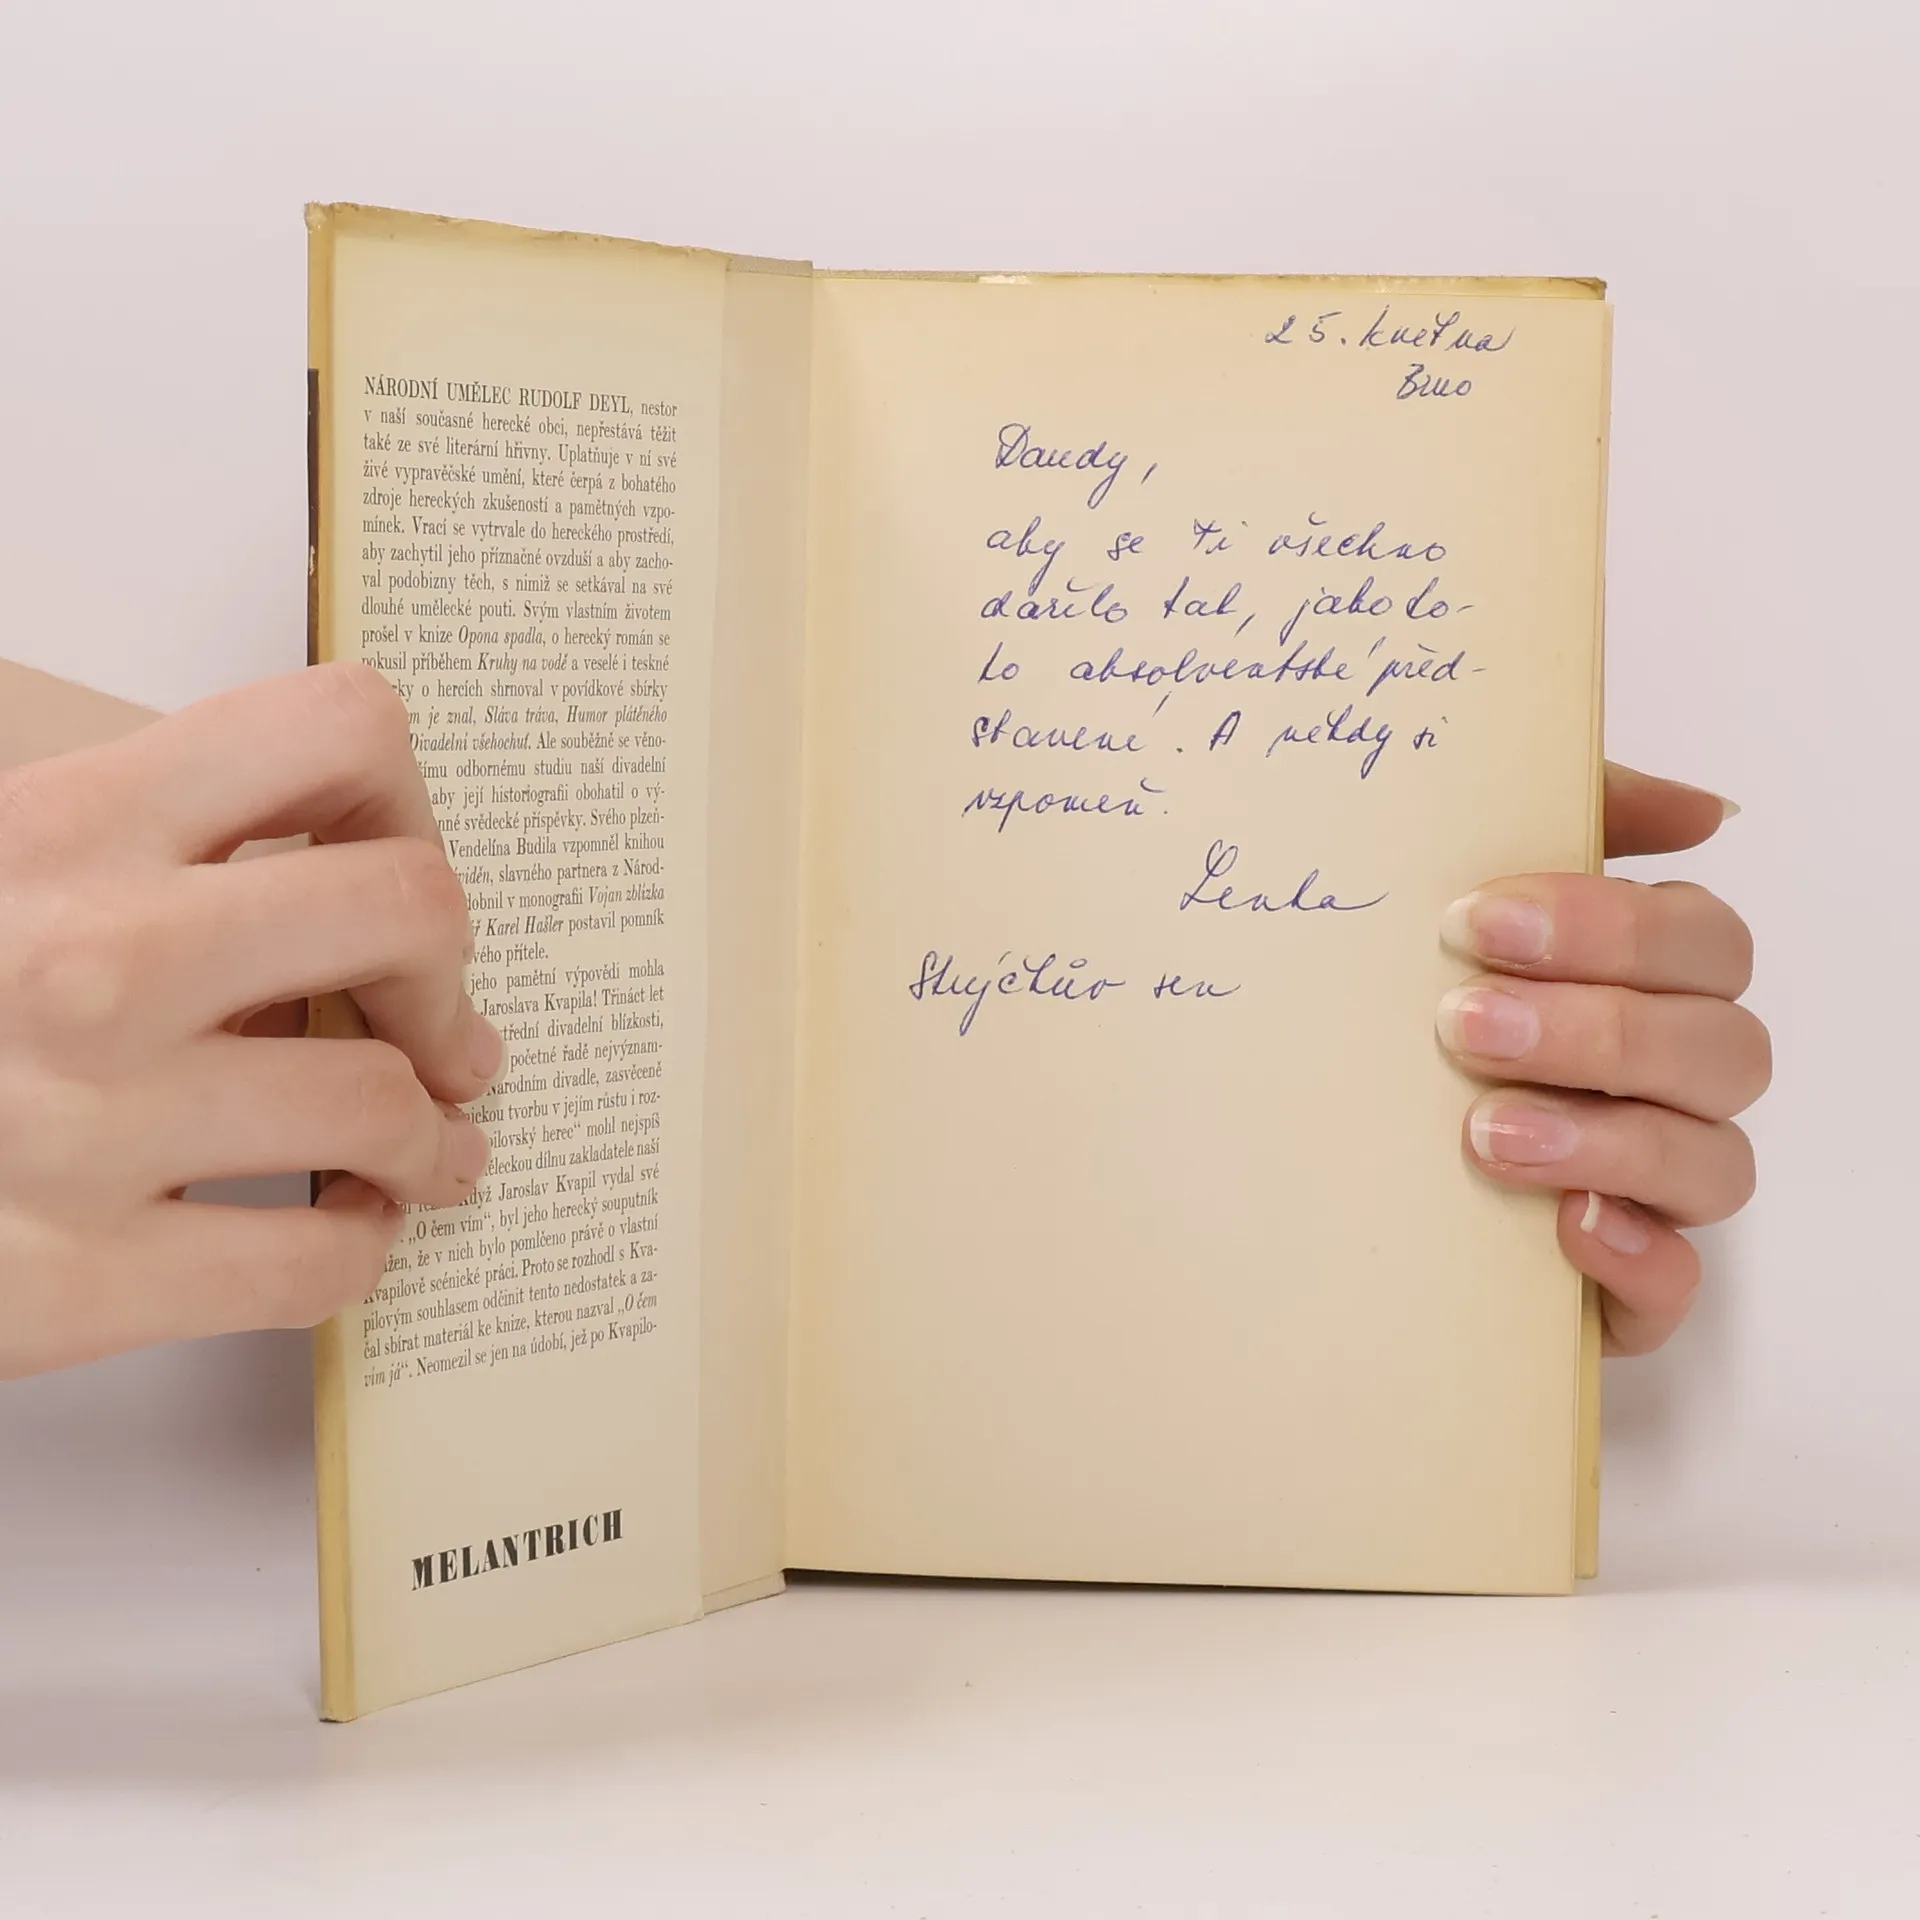 NÁRODNÍ UMĚLEC RUDOLF DEYL, nestor
v naší současné herecké obci, nepřestává těžit
také ze své literární hřivny. Uplatňuje v ní své
živé vypravěčské umění, které čerpá z bohatého
zdroje hereckých zkušeností a pamětných vzpo-
mínek. Vrací se vytrvale do hereckého prostředí,
aby zachytil jeho příznačné ovzduší a aby zacho-
val podobizny těch, s nimiž se setkával na své
dlouhé umělecké pouti. Svým vlastním životem
prošel v knize Opona spadla, o herecký román se
pokusil příběhem Kruhy na vodě a veselé i teskné
rky o hercích shrnoval v povídkové sbírky
m je znal, Sláva tráva, Humor plátěného
Divadelní všehochuť. Ale souběžně se věno-
šímu odbornému studiu naší divadelní
aby její historiografii obohatil o vý-
nné svědecké příspěvky. Svého plzeň-
Vendelína Budila vzpomněl knihou
viděn, slavného partnera z Národ-
dobnil v monografii Vojan zblízka
ř Karel Hašler postavil pomník
vého přítele.
jeho pamětní výpovědi mohla
Jaroslava Kvapila! Třináct let
třední divadelní blízkosti,
početné řadě nejvýznam-
Národním divadle, zasvěceně
ickou tvorbu v jejím růstu i roz-
pilovský herec“ mohl nejspíš
ěleckou dílnu zakladatele naší
Když Jaroslav Kvapil vydal své
„O čem vím“, byl jeho herecký souputník
žen, že v nich bylo pomlčeno právě o vlastní
Kvapilově scénické práci. Proto se rozhodl s Kva-
pilovým souhlasem odčinit tento nedostatek a za-
čal sbírat materiál ke knize, kterou nazval „O čem
vím já“. Neomezil se jen na údobí, jež po Kvapilo-
MELANTRICH
25. května
Brno
Dandy,
aby se Ti všechno
dařilo tak, jako to-
to absolventské před-
stavení. A někdy si
vzpomeň.
Lenka
Strýčkův sen